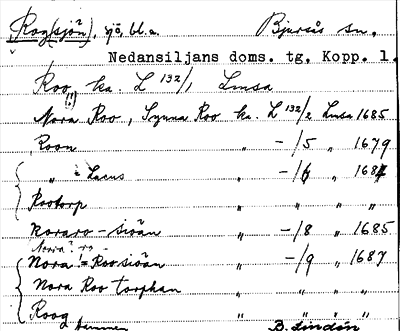 Rog(sjön), sjö, bl.a. Bjursås sn.
Nedansiljans doms. tg. Kopp. l.
Roo, ha. L 132/1 Lmsa
(!)
Nora Roo, Synna Roo ha. L 132/2 Lmsa 1685
Roon " -/5 " 1679
" = Lacus " -/6 " 168
Rootorp " " "
Noraro-siöän " -/8 " 1685
Nora = Roo siöän " -/9 " 1687
Nora Roo torphan " " "
Roog " " "
B. Lindén